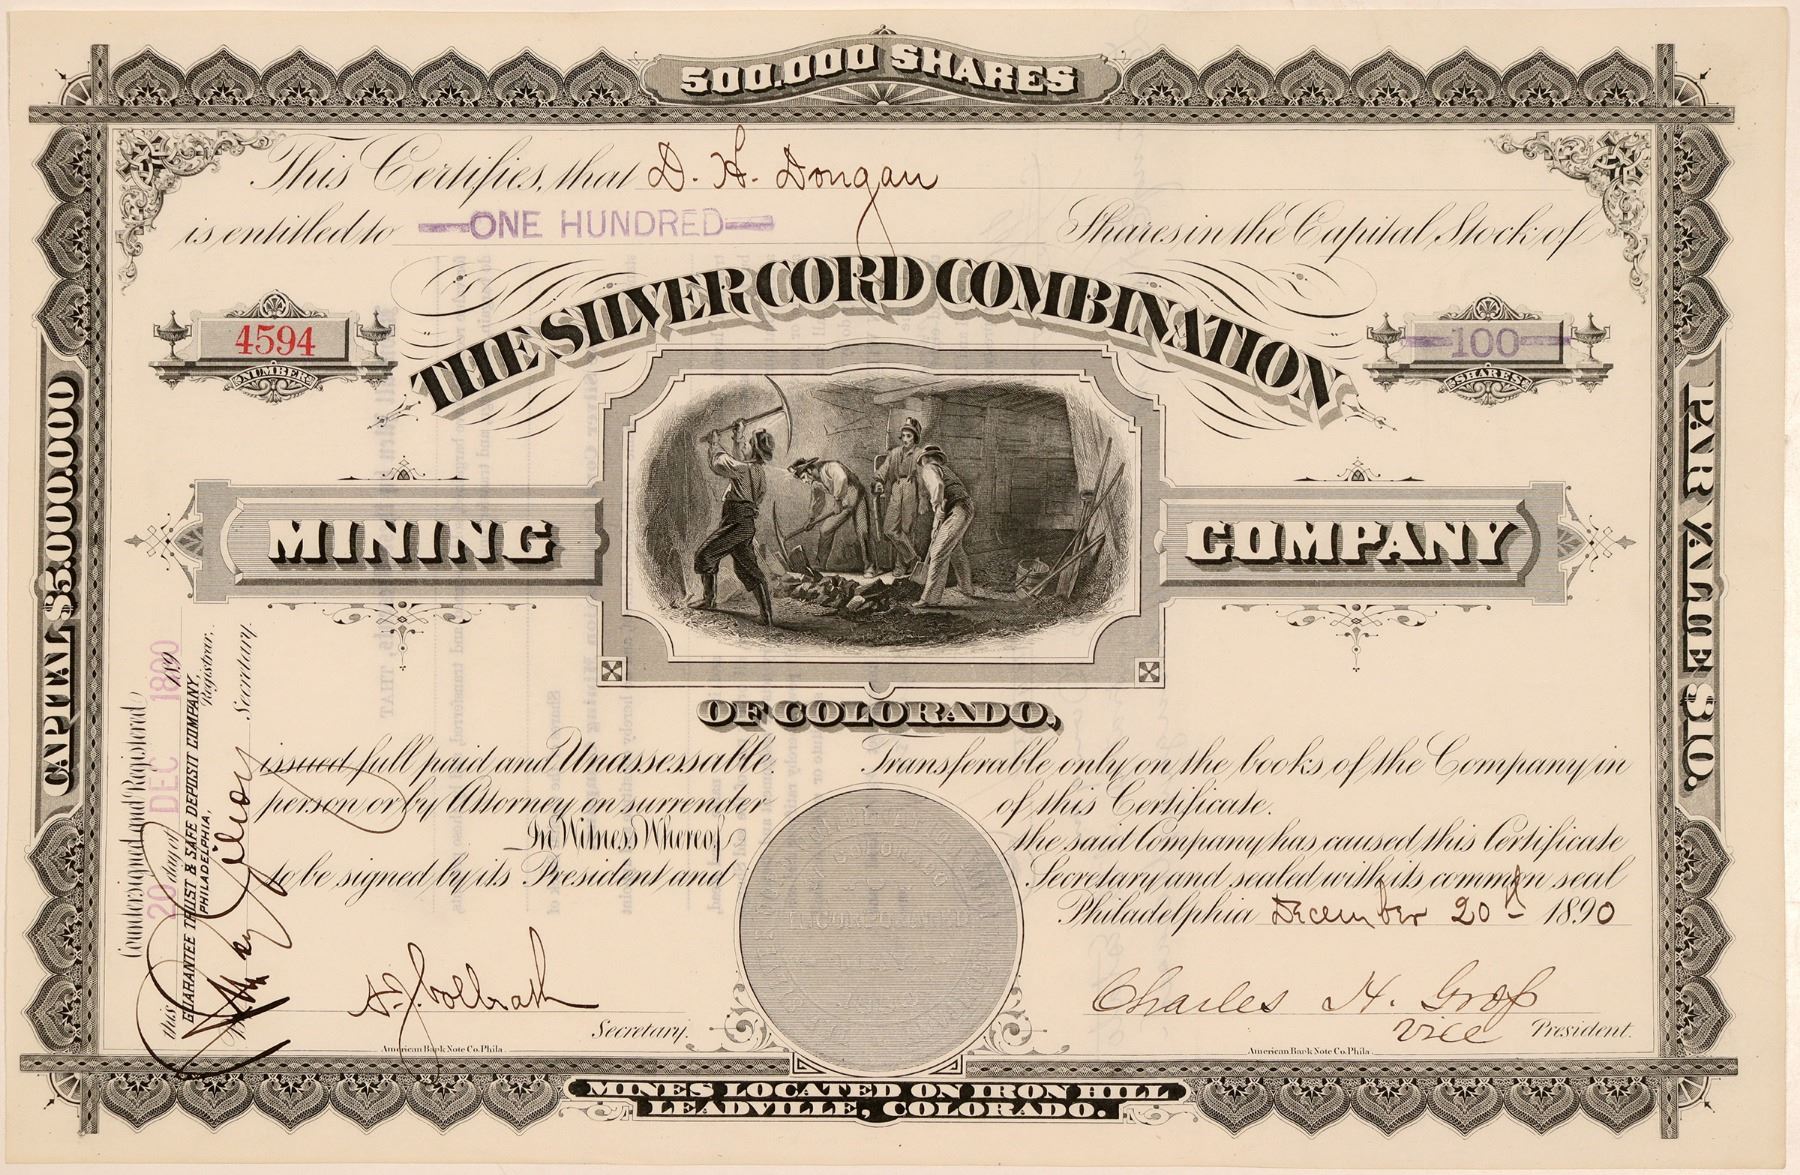 500,000 SHARES
This Certifies, that D. H. Dougan
is entitled to ONE HUNDRED Shares in the Capital Stock of
THE SILVER CORD COMBINATION
4594
NUMBER
100
SHARES
MINING COMPANY
OF COLORADO,
issued full paid and Unassessable. Transferable only on the books of the Company in
person or by Attorney on surrender of this Certificate.
In Witness Whereof the said Company has caused this Certificate
to be signed by its President and Secretary and sealed with its common seal
Philadelphia December 20th 1890
Secretary.
Charles H.
Vice President.
American Bank Note Co. Phila.
American Bank Note Co. Phila.
MINES LOCATED ON IRON HILL
LEADVILLE, COLORADO.
CAPITAL $5,000,000
PAR VALUE $10.
Countersigned and Registered
this 20 day of DEC 1890 189
GUARANTEE TRUST & SAFE DEPOSIT COMPANY,
PHILADELPHIA,
Registrar,
Secretary.
INCORPORATED